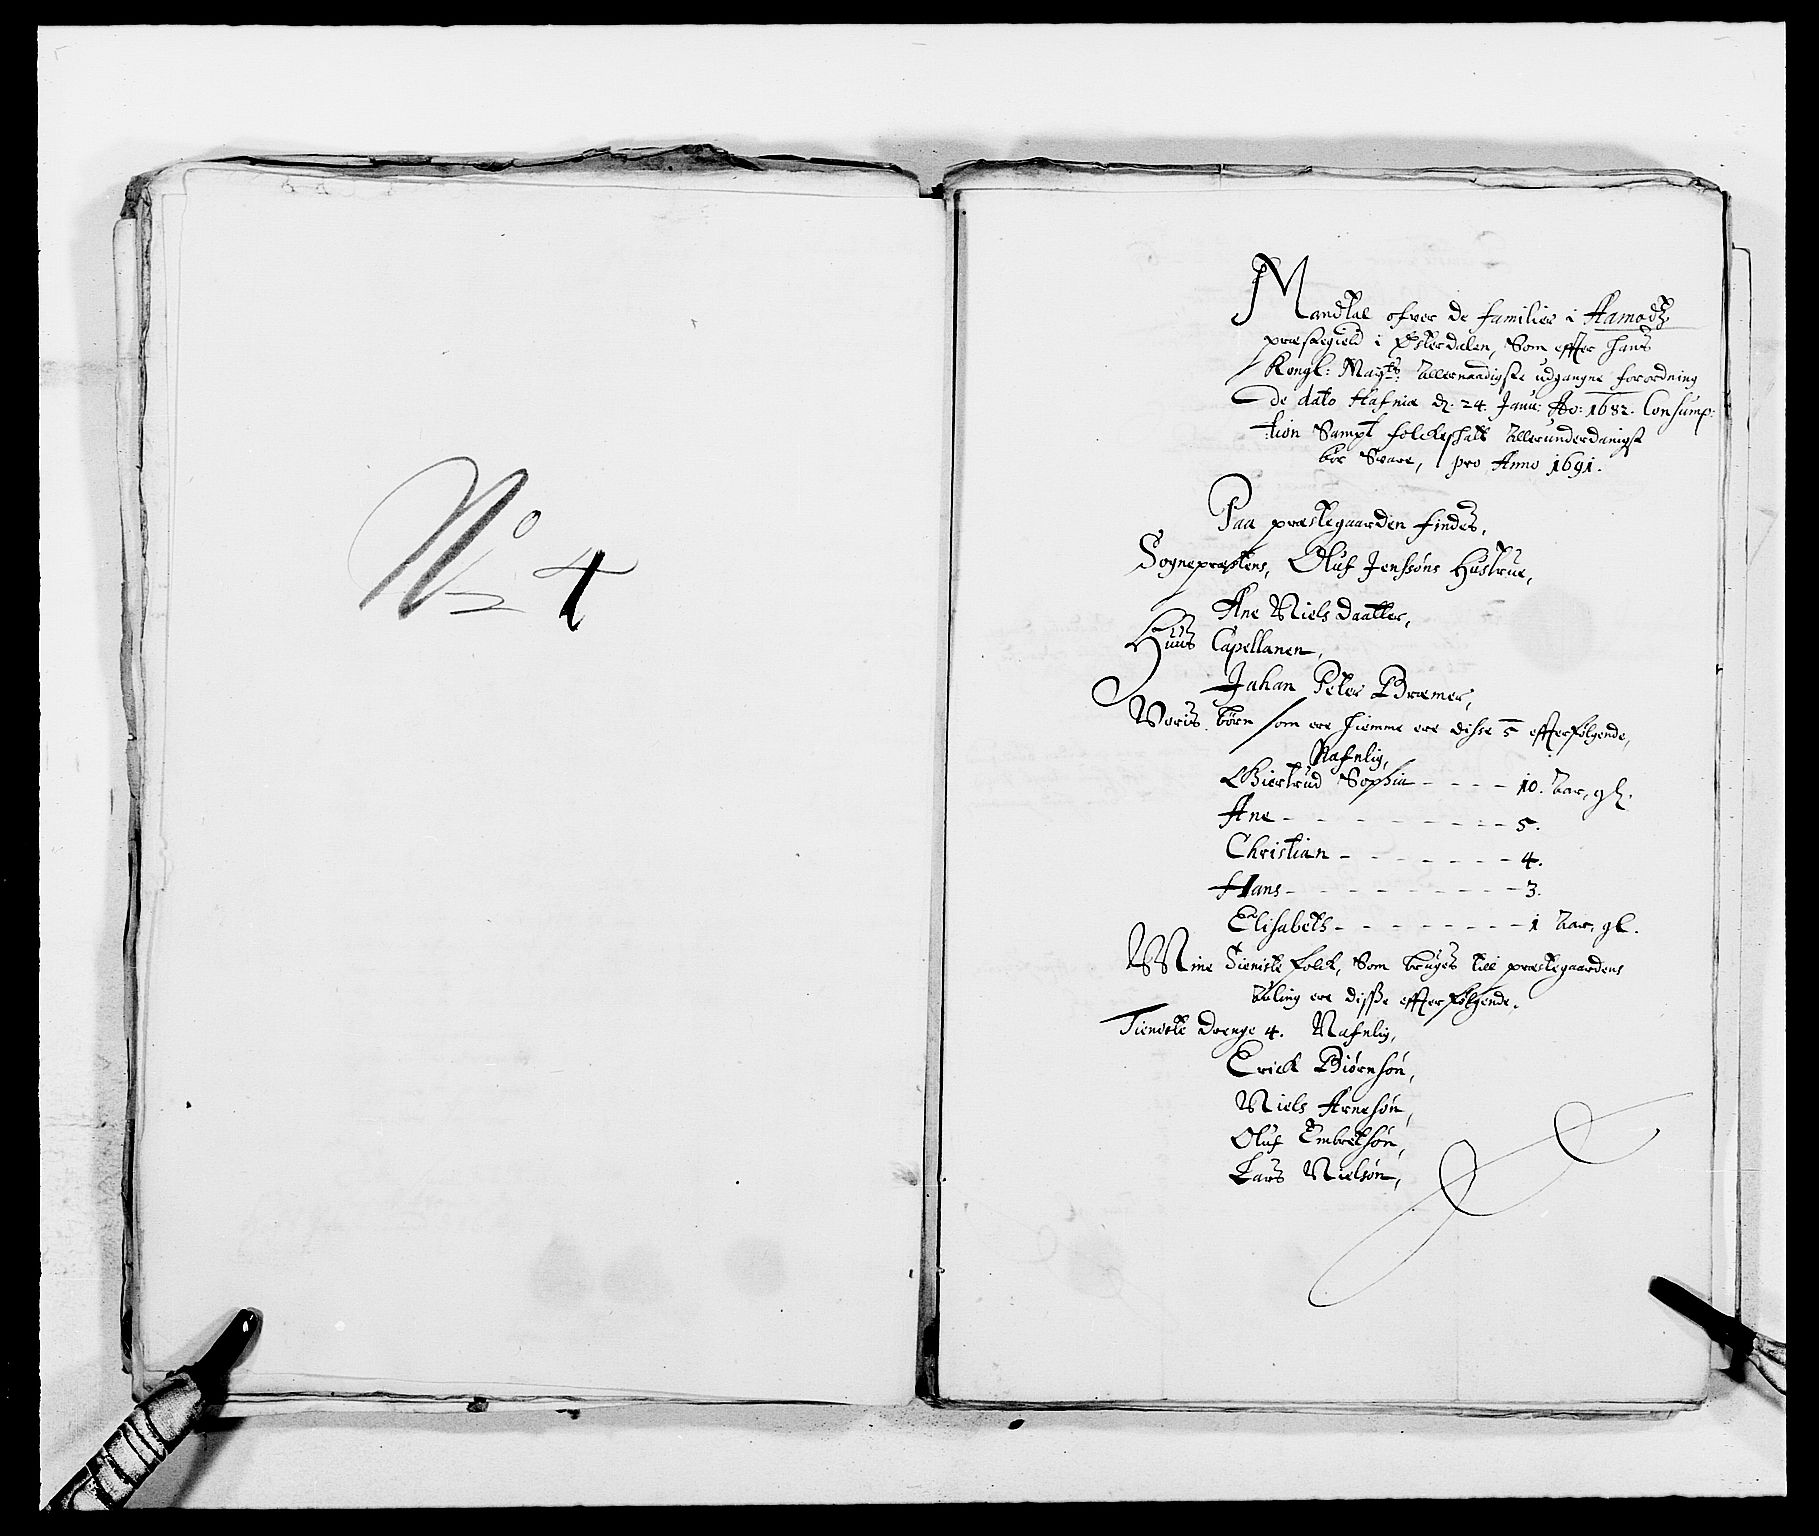 No 4
Mandtal ofver de familier i Aamodtz
præstegield i Østerdalen, Som effter hans
Kongl: Mayts: Allernaadigste udgangne forordning
De dato Hafniæ d. 24. Janu: Ao: 1682. Consump:
tion Sampt folckeskatt Allerunderdanigst
bør Svare, pro Anno 1691.
Paa præstegaarden findes,
Sognepræstens, Oluf Jenssøns Hustrue,
Ane Niels daatter,
Huus Capellanen,
Johan Peter Bræmer,
Voris børn som ere hiemme ere disse 5 effterfølgende,
Nafnlig,
Giertrud Sophia - - - - 10. Aar, gl.
Ane - - - - - - - - - - 5.
Christian - - - - - - - 4.
Hans - - - - - - - - - - 3.
Elisabeth - - - - - - - - 1 Aar, gl.
Mine tieniste folck, Som bruges till præstegaardens
Auling ere disse effterfølgende.
Tieniste drenge 4. Nafnlig,
Erick Biørnsøn,
Niels Arnesøn,
Oluf Embretsøn,
Lars Nielsøn,